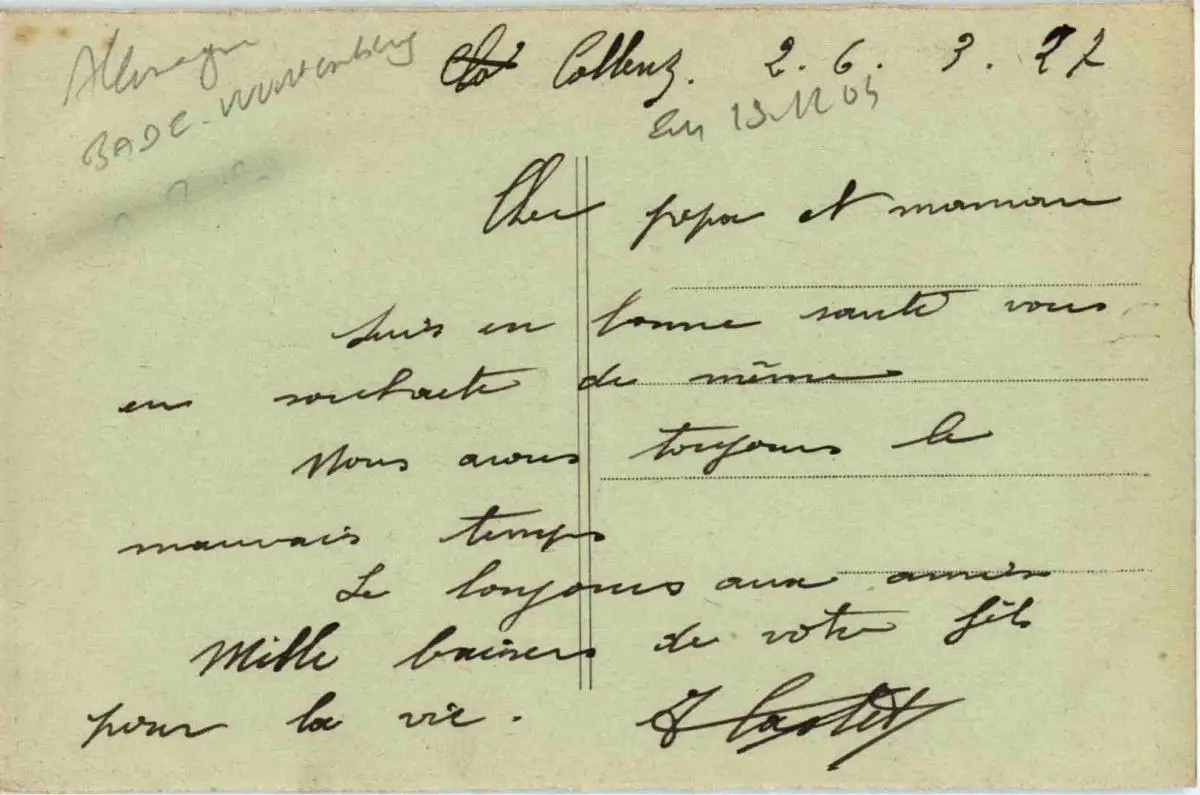 Allemagne
BADE-Wurtemberg
Coblenz. 2.6.3.27
Cher papa et maman
Suis en bonne santé vous
en souhaite de même
Nous avons toujours le
mauvais temps
Le toujours aux
Mille baisers de votre fils
pour la vie.